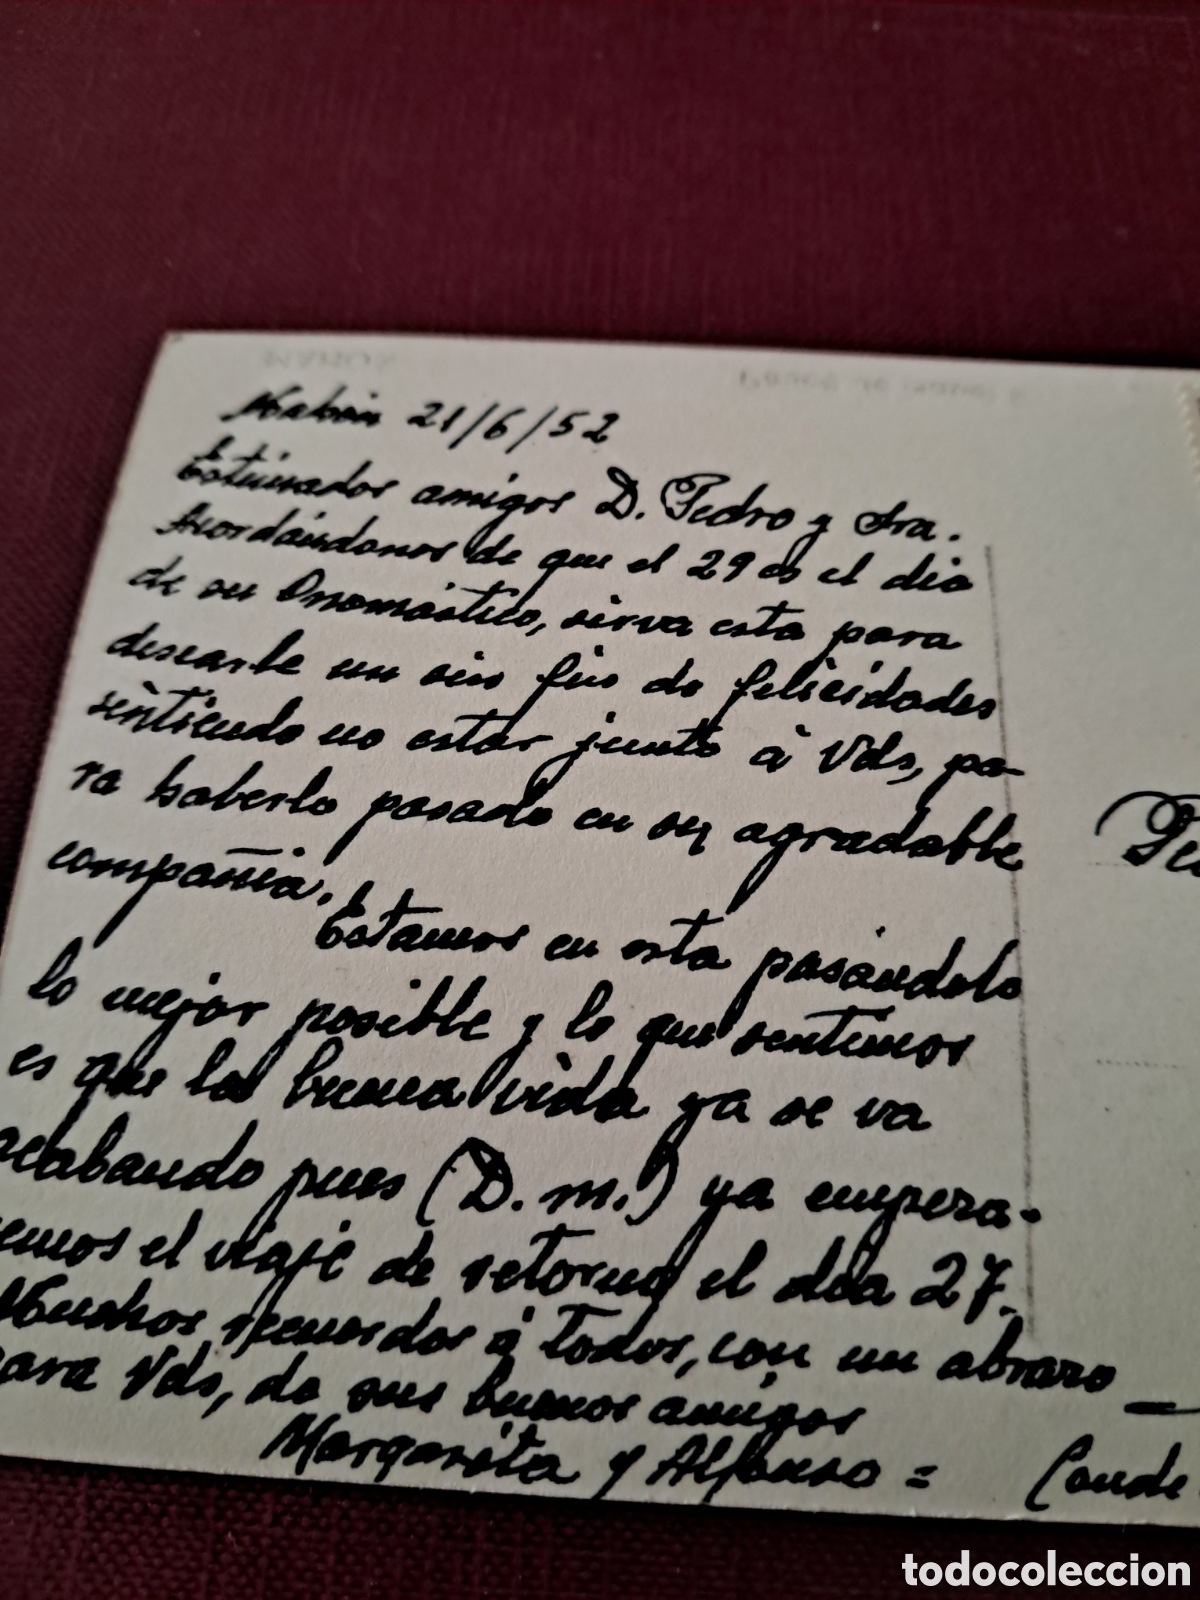 Mahón 21/6/52
Estimados amigos D. Pedro y Sra.
Acordándonos de que el 29 es el dia
de su Onomástico, sirva esta para
desearle un sin fin de felicidades
sintiendo no estar junto á Vds, pa-
ra haberlo pasado en su agradable
compañia.
Estamos en esta pasándolo
lo mejor posible y lo que sentimos
es que la buena vida ya se va
acabando pues (D. m.) ya empeza-
remos el viaje de retorno el dia 27.
Muchos recuerdos á Todos, con un abrazo
para Vds, de sus buenos amigos
Margarita y Alfonso =
Conde
todocoleccion